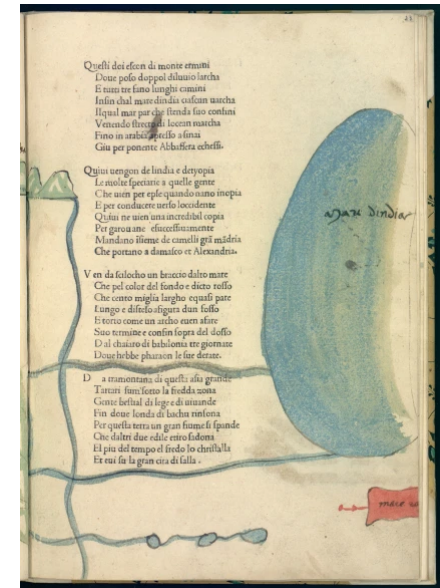 Questi doi escon di monte ermini
Doue poso doppol diluuio larcha
E tutti tre fano lunghi cimini
Infin chal mare dindia ciascun uarcha
Ilqual mar par che stenda suo confini
Venendo di locean marcha
Fino in arabia apresso a sinai
Giu per ponente
Quiui uengon de lindia e detyopia
Le molte speciarie a quelle gente
Che uien per epse quando nano inopia
E per conducere uerso loccidente
Quiui ne uien una incredibil copia
Per garouane esuccessiuamente
Mandano isieme de camelli grã mãdria
Che portano a damasco et Alexandria.
Ven da scilocho un braccio dalto mare
Che pel color del fondo e dicto rosso
Che cento miglia largho equasi pare
Lungo e disteso afigura dun fosso
E torto come un archo euen afare
Suo termine e confin sopra del dosso
D al chaiaro di babilonia tre giornate
Doue hebbe pharaon le sue derate.
D a tramontana di questa asia grande
Tartari sum sotto la fredda zona
Gente bestial di lege e di uiuande
Fin doue londa di bachu rinsona
Per questa terra un gran fiume si spande
Che daltri due edile etiro sadona
El piu del tempo el fredo lo christalla
Et eui su la gran cita di salla.
Mare dindia
mare